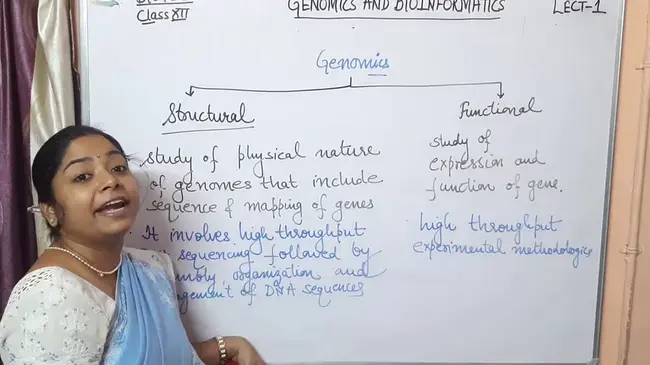 Class XII
GENOMICS AND BIOINFORMATICS
LECT-1
Genomics
Structural
study of physical nature
of genomes that include
sequence & mapping of genes
It involves high throughput
sequencing followed by
organization and
of DNA sequences
Functional
study of
expression and
function of gene.
high throughput
experimental methodologies